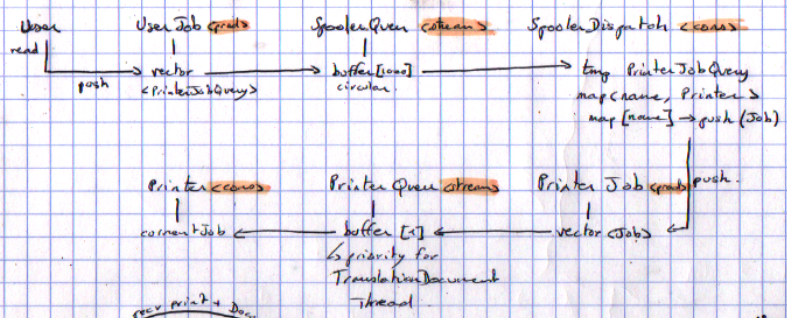 User
UserJob <prod>
SpoolerQueu <stream>
SpoolerDispatch <cons>
read
push
vector
<PrinterJobQuery>
buffer[1000]
circular.
tmp PrinterJobQuery
map<name, Printer>
map [name] → push (Job)
push.
Printer <cons>
Printer Queu <stream>
Printer Job <prod>
currentJob
buffer [1]
vector <Job>
↳ priority for
TranslationDocument
Thread.
recv print + Docu